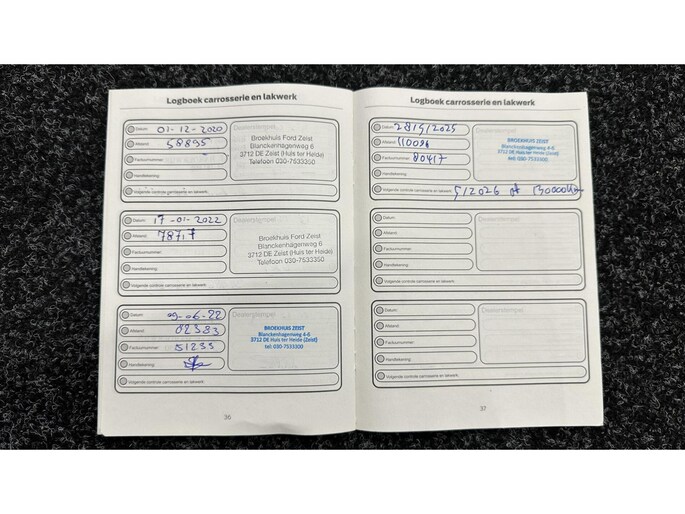 Logboek carrosserie en lakwerk
Datum: 01-12-2020
Afstand: 58895
Factuurnummer:
Handtekening:
Volgende controle carrosserie en lakwerk:
Dealerstempel
Broekhuis Ford Zeist
Blanckenhagenweg 6
3712 DE Zeist (Huis ter Heide)
Telefoon 030-7533350
Datum: 17-01-2022
Afstand: 78717
Factuurnummer:
Handtekening:
Volgende controle carrosserie en lakwerk:
Dealerstempel
Broekhuis Ford Zeist
Blanckenhagenweg 6
3712 DE Zeist (Huis ter Heide)
Telefoon 030-7533350
Datum: 09-06-22
Afstand: 02383
Factuurnummer: 51233
Handtekening:
Volgende controle carrosserie en lakwerk:
Dealerstempel
BROEKHUIS ZEIST
Blanckenhagenweg 4-6
3712 DE Huis ter Heide (Zeist)
tel: 030-7533300
36
Logboek carrosserie en lakwerk
Datum: 28/5/2025
Afstand: 110091
Factuurnummer: 80417
Handtekening:
Volgende controle carrosserie en lakwerk: 5/2026 of 130000km
BROEKHUIS ZEIST
Blanckenhagenweg 4-6
3712 DE Huis ter Heide (Zeist)
tel: 030-7533300
Datum:
Afstand:
Factuurnummer:
Handtekening:
Volgende controle carrosserie en lakwerk:
Dealerstempel
Datum:
Afstand:
Factuurnummer:
Handtekening:
Volgende controle carrosserie en lakwerk:
Dealerstempel
37